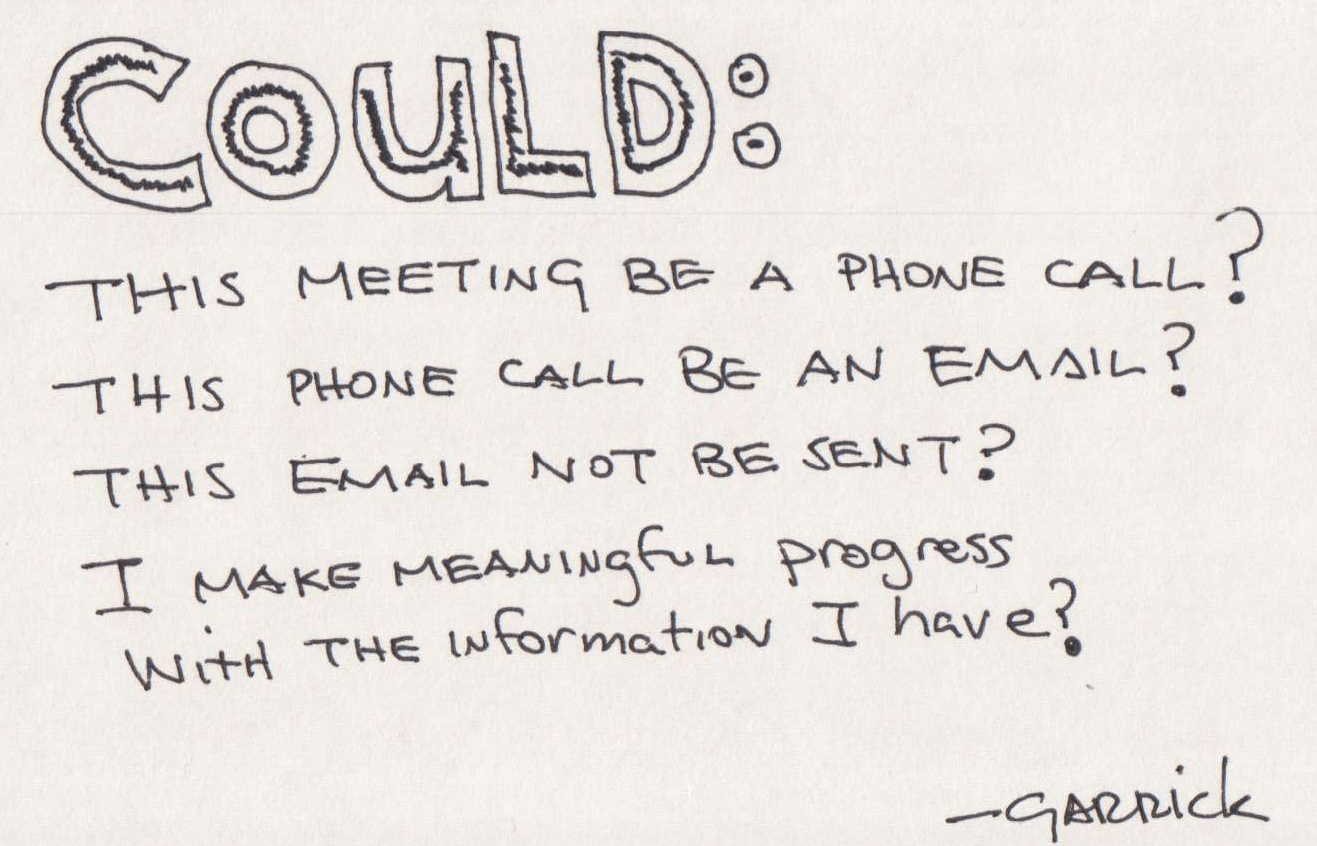 COULD:
THIS MEETING BE A PHONE CALL?
THIS PHONE CALL BE AN EMAIL?
THIS EMAIL NOT BE SENT?
I MAKE MEANINgfuL progress
WiTH THE INformatioN I have?
—GARRick